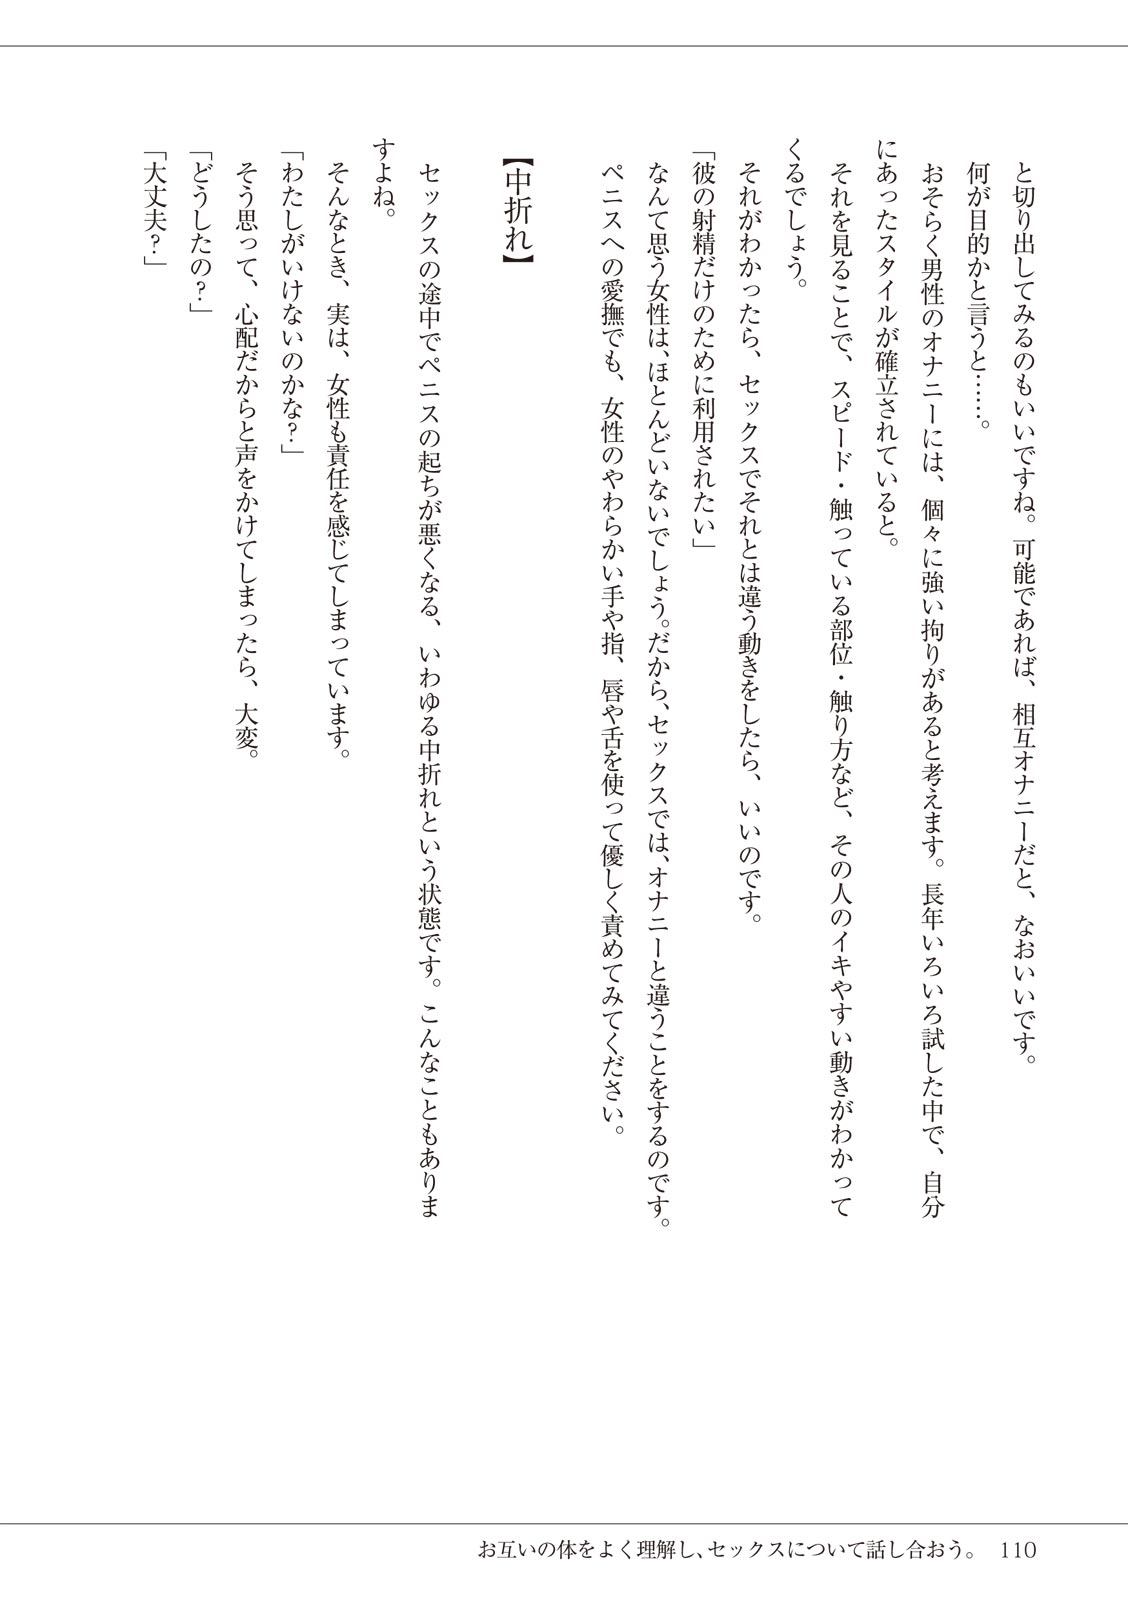 と切り出してみるのもいいですね。可能であれば、相互オナニーだと、なおいいです。
何が目的かと言うと……。
おそらく男性のオナニーには、個々に強い拘りがあると考えます。長年いろいろ試した中で、自分
にあったスタイルが確立されていると。
それを見ることで、スピード・触っている部位・触り方など、その人のイキやすい動きがわかって
くるでしょう。
それがわかったら、セックスでそれとは違う動きをしたら、いいのです。
「彼の射精だけのために利用されたい」
なんて思う女性は、ほとんどいないでしょう。だから、セックスでは、オナニーと違うことをするのです。
ペニスへの愛撫でも、女性のやわらかい手や指、唇や舌を使って優しく責めてみてください。
【中折れ】
セックスの途中でペニスの起ちが悪くなる、いわゆる中折れという状態です。こんなこともありま
すよね。
そんなとき、実は、女性も責任を感じてしまっています。
「わたしがいけないのかな？」
そう思って、心配だからと声をかけてしまったら、大変。
「どうしたの？」
「大丈夫？」
お互いの体をよく理解し、セックスについて話し合おう。 110